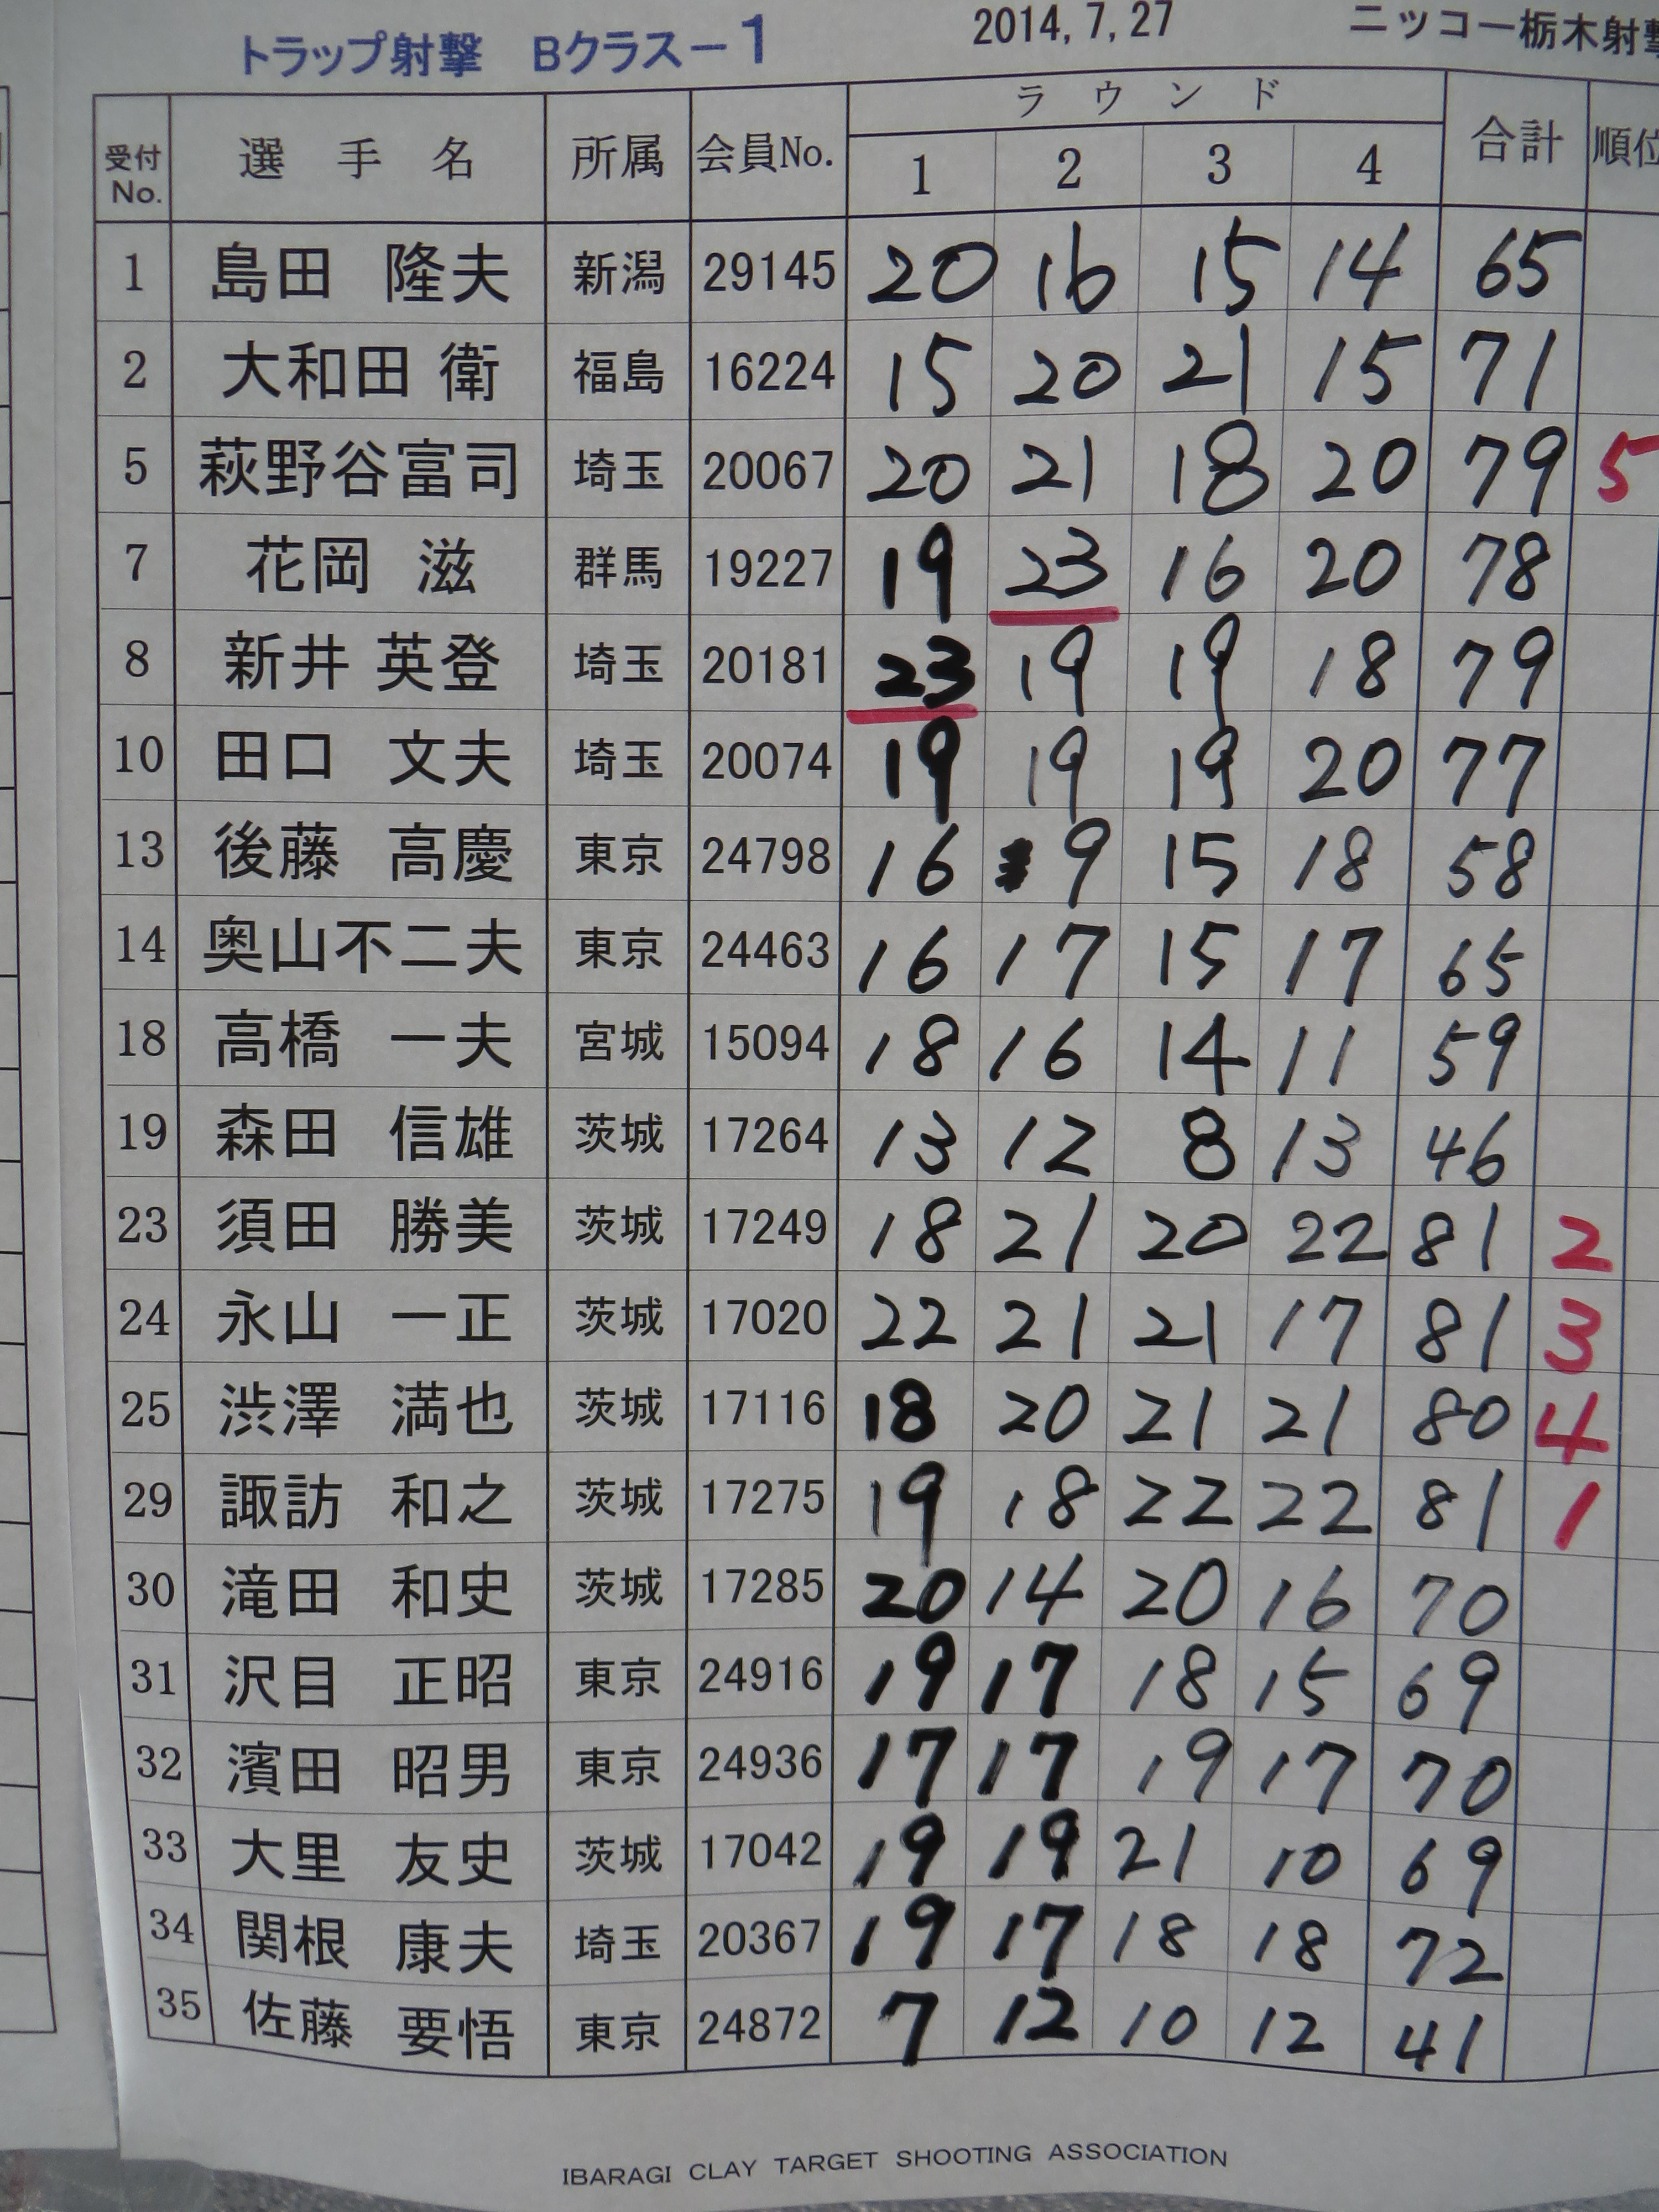 トラップ射撃 Bクラス－1 2014,7,27 ニッコー栃木射撃
受付No. 選手名 所属 会員No. ラウンド 1 2 3 4 合計 順位
1 島田 隆夫 新潟 29145 20 16 15 14 65
2 大和田 衛 福島 16224 15 20 21 15 71
5 萩野谷富司 埼玉 20067 20 21 18 20 79 5
7 花岡 滋 群馬 19227 19 23 16 20 78
8 新井 英登 埼玉 20181 23 19 19 18 79
10 田口 文夫 埼玉 20074 19 19 19 20 77
13 後藤 高慶 東京 24798 16 9 15 18 58
14 奥山不二夫 東京 24463 16 17 15 17 65
18 高橋 一夫 宮城 15094 18 16 14 11 59
19 森田 信雄 茨城 17264 13 12 8 13 46
23 須田 勝美 茨城 17249 18 21 20 22 81 2
24 永山 一正 茨城 17020 22 21 21 17 81 3
25 渋澤 満也 茨城 17116 18 20 21 21 80 4
29 諏訪 和之 茨城 17275 19 18 22 22 81 1
30 滝田 和史 茨城 17285 20 14 20 16 70
31 沢目 正昭 東京 24916 19 17 18 15 69
32 濱田 昭男 東京 24936 17 17 19 17 70
33 大里 友史 茨城 17042 19 19 21 10 69
34 関根 康夫 埼玉 20367 19 17 18 18 72
35 佐藤 要悟 東京 24872 7 12 10 12 41
IBARAGI CLAY TARGET SHOOTING ASSOCIATION